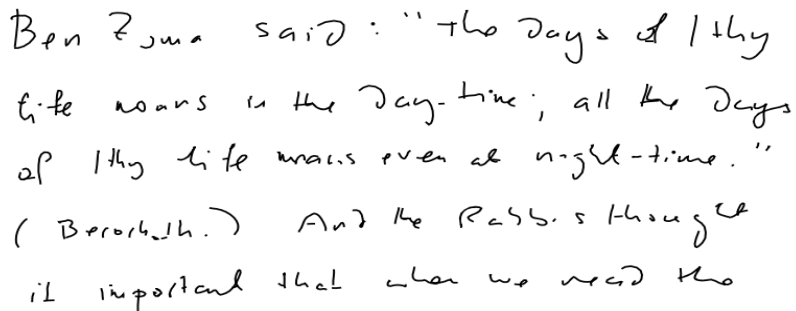 Ben Zoma said: "The days of 1thy
life means in the day-time; all the days
of 1thy life means even at night-time."
(Berochoth.) And the Rabbis thought
it important that when we read the